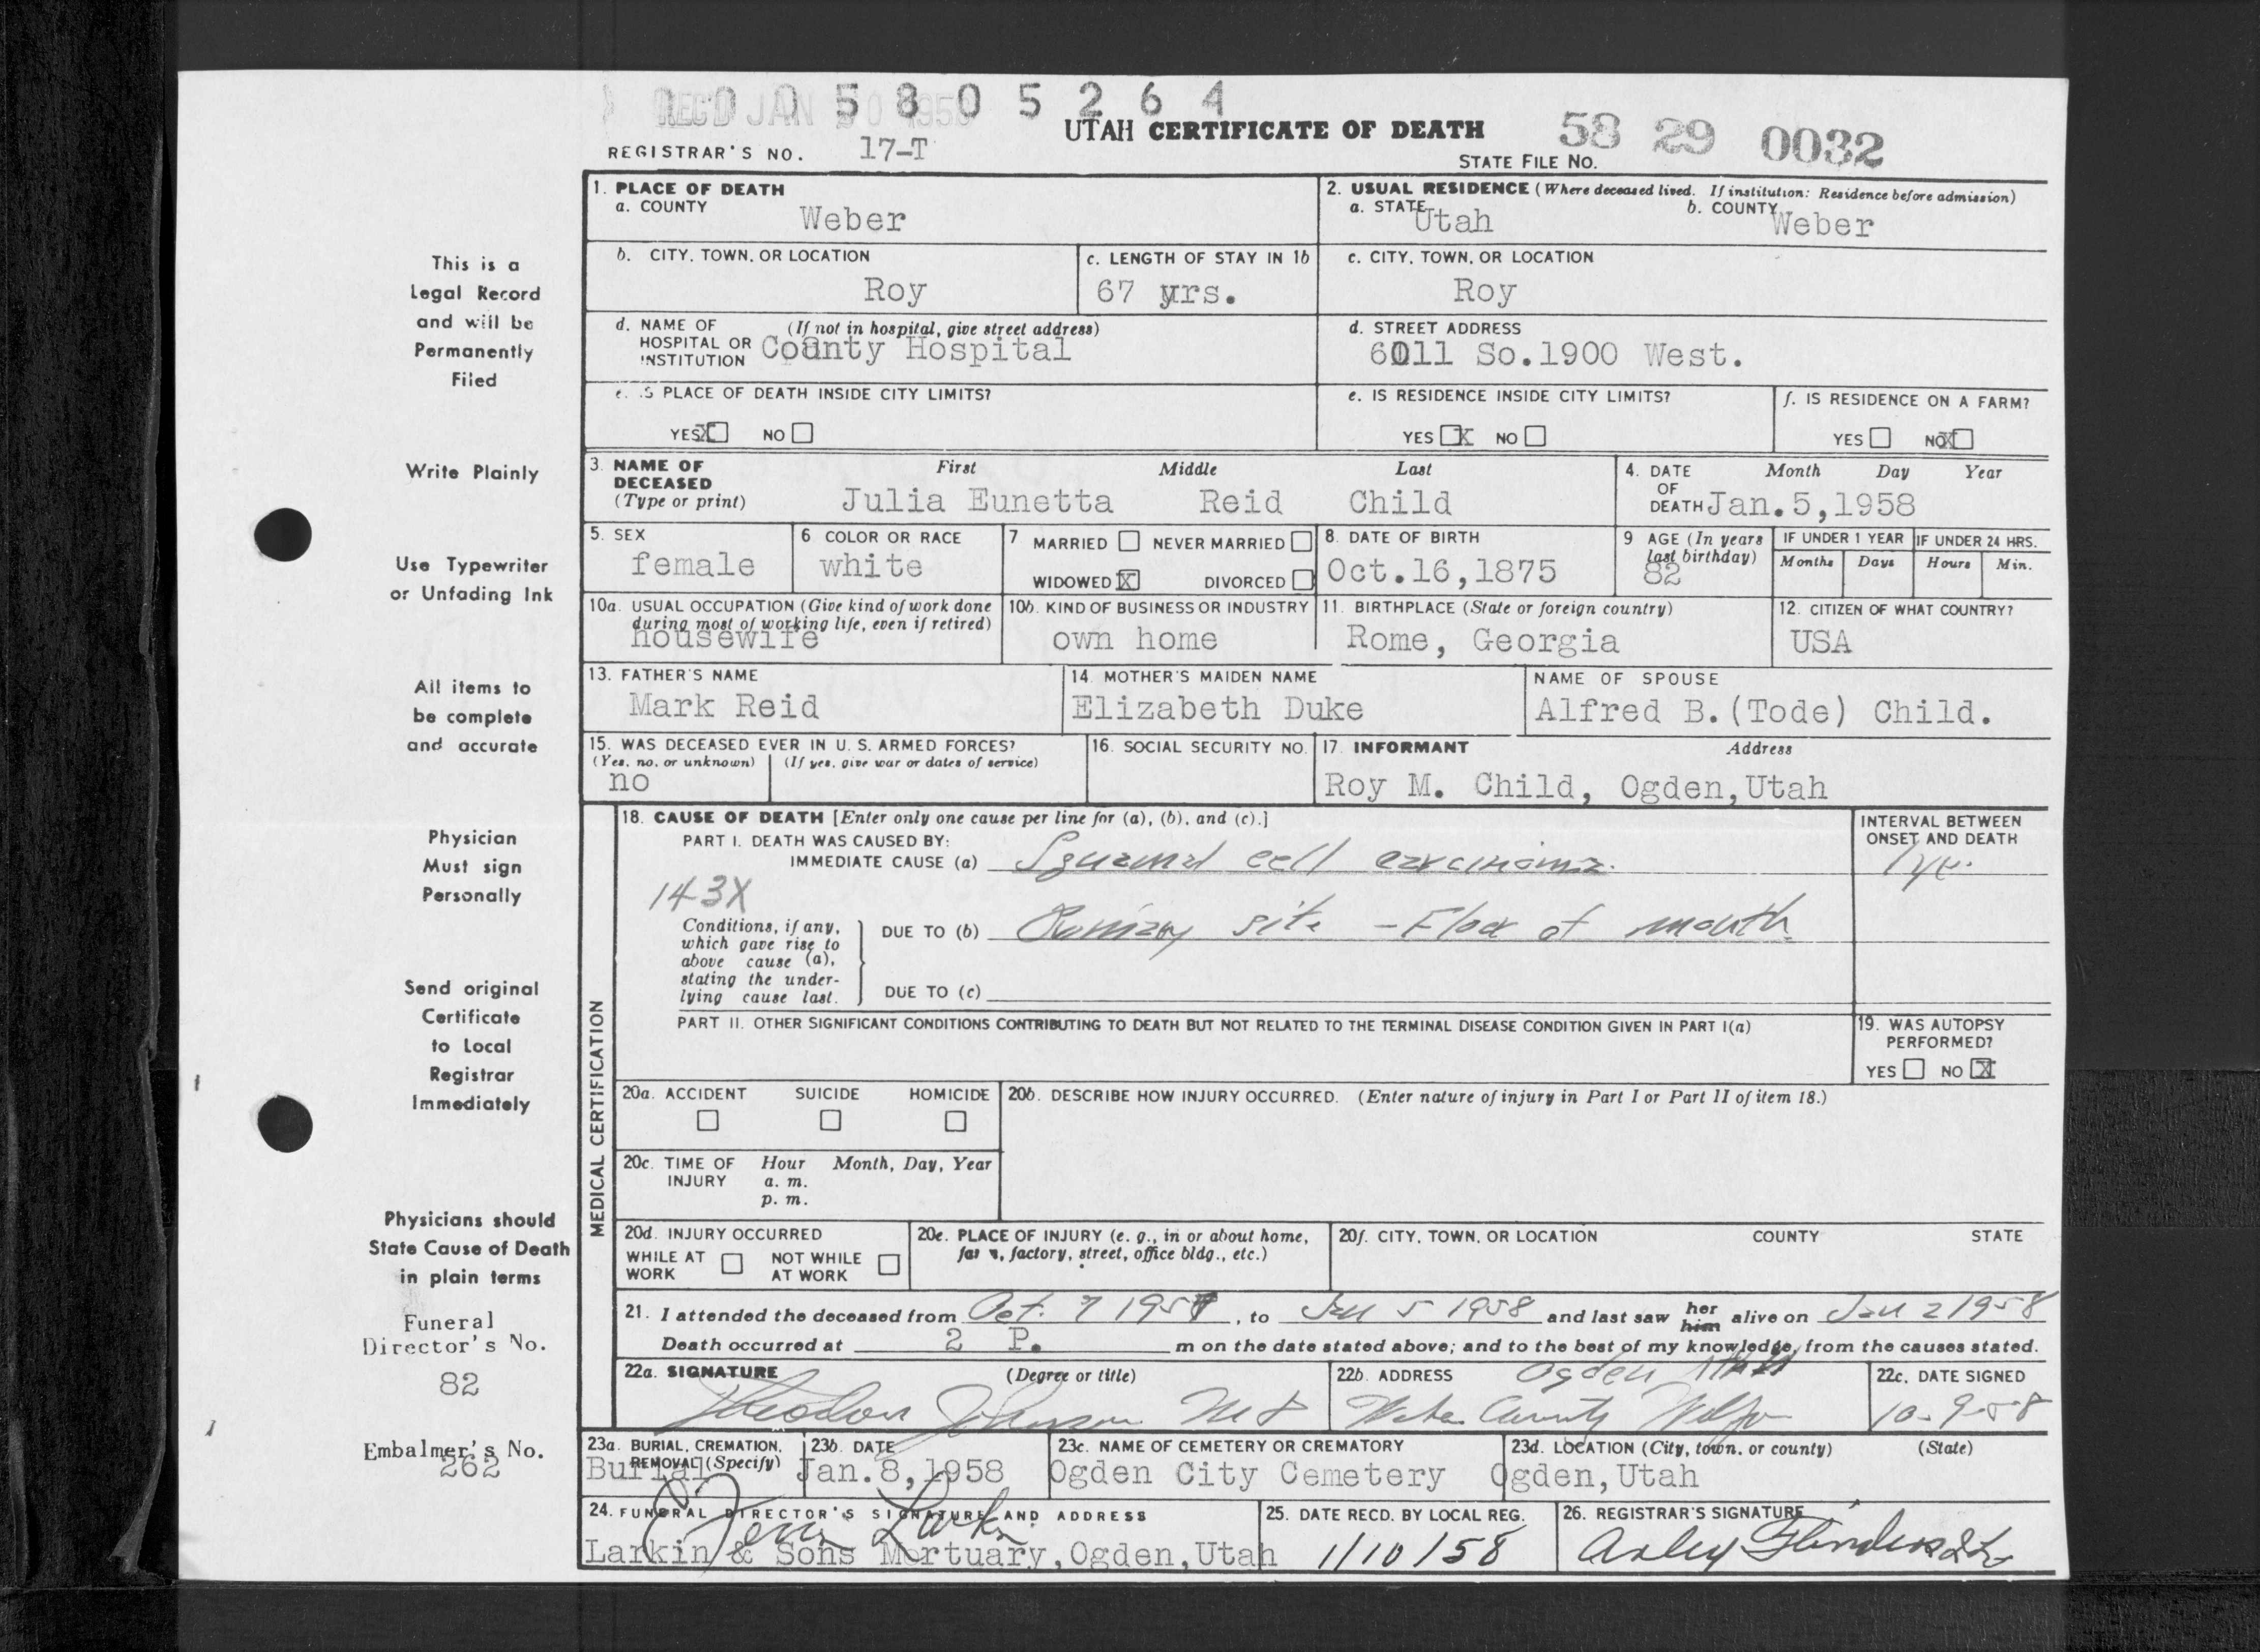 0 0 5 8 0 5 2 6 4
REC'D JAN
UTAH CERTIFICATE OF DEATH
58 29 0032
REGISTRAR'S NO. 17-T
STATE FILE NO.
1. PLACE OF DEATH
a. COUNTY
Weber
2. USUAL RESIDENCE (Where deceased lived. If institution: Residence before admission)
a. STATE Utah
b. COUNTY Weber
b. CITY, TOWN, OR LOCATION
Roy
c. LENGTH OF STAY IN 1b
67 yrs.
c. CITY, TOWN, OR LOCATION
Roy
d. NAME OF HOSPITAL OR INSTITUTION
(If not in hospital, give street address)
County Hospital
d. STREET ADDRESS
6011 So.1900 West.
e. IS PLACE OF DEATH INSIDE CITY LIMITS?
YES X NO
e. IS RESIDENCE INSIDE CITY LIMITS?
YES X NO
f. IS RESIDENCE ON A FARM?
YES NO X
3. NAME OF DECEASED (Type or print)
First Middle Last
Julia Eunetta Reid Child
4. DATE OF DEATH
Month Day Year
Jan.5,1958
5. SEX
female
6 COLOR OR RACE
white
7 MARRIED NEVER MARRIED
WIDOWED X DIVORCED
8. DATE OF BIRTH
Oct.16,1875
9 AGE (In years last birthday)
82
IF UNDER 1 YEAR
Months Days
IF UNDER 24 HRS.
Hours Min.
10a. USUAL OCCUPATION (Give kind of work done during most of working life, even if retired)
housewife
10b. KIND OF BUSINESS OR INDUSTRY
own home
11. BIRTHPLACE (State or foreign country)
Rome, Georgia
12. CITIZEN OF WHAT COUNTRY?
USA
13. FATHER'S NAME
Mark Reid
14. MOTHER'S MAIDEN NAME
Elizabeth Duke
NAME OF SPOUSE
Alfred B.(Tode) Child.
15. WAS DECEASED EVER IN U. S. ARMED FORCES?
(Yes, no, or unknown) (If yes, give war or dates of service)
no
16. SOCIAL SECURITY NO.
17. INFORMANT Address
Roy M. Child, Ogden,Utah
MEDICAL CERTIFICATION
18. CAUSE OF DEATH [Enter only one cause per line for (a), (b), and (c).]
PART I. DEATH WAS CAUSED BY:
IMMEDIATE CAUSE (a) Squamal cell carcinoma
INTERVAL BETWEEN ONSET AND DEATH
1 yr.
143X
Conditions, if any, which gave rise to above cause (a), stating the underlying cause last.
DUE TO (b) Primary site - Floor of mouth
DUE TO (c)
PART II. OTHER SIGNIFICANT CONDITIONS CONTRIBUTING TO DEATH BUT NOT RELATED TO THE TERMINAL DISEASE CONDITION GIVEN IN PART I(a)
19. WAS AUTOPSY PERFORMED?
YES NO X
20a. ACCIDENT SUICIDE HOMICIDE
20b. DESCRIBE HOW INJURY OCCURRED. (Enter nature of injury in Part I or Part II of item 18.)
20c. TIME OF INJURY
Hour Month, Day, Year
a. m.
p. m.
20d. INJURY OCCURRED
WHILE AT WORK NOT WHILE AT WORK
20e. PLACE OF INJURY (e. g., in or about home, farm, factory, street, office bldg., etc.)
20f. CITY, TOWN, OR LOCATION COUNTY STATE
21. I attended the deceased from Oct. 7 1957, to Jan 5 1958 and last saw her him alive on Jan 2 1958
Death occurred at 2 P. m on the date stated above; and to the best of my knowledge, from the causes stated.
22a. SIGNATURE (Degree or title)
Theodore Johnson MD
22b. ADDRESS
Ogden Utah
Weber County
22c. DATE SIGNED
10-9-58
23a. BURIAL, CREMATION, REMOVAL (Specify)
Burial
23b. DATE
Jan.8,1958
23c. NAME OF CEMETERY OR CREMATORY
Ogden City Cemetery
23d. LOCATION (City, town, or county) (State)
Ogden,Utah
24. FUNERAL DIRECTOR'S SIGNATURE AND ADDRESS
Larkin
Larkin & Sons Mortuary,Ogden,Utah
25. DATE RECD. BY LOCAL REG.
1/10/58
26. REGISTRAR'S SIGNATURE
Flinders
This is a
Legal Record
and will be
Permanently
Filed
Write Plainly
Use Typewriter
or Unfading Ink
All items to
be complete
and accurate
Physician
Must sign
Personally
Send original
Certificate
to Local
Registrar
Immediately
Physicians should
State Cause of Death
in plain terms
Funeral
Director's No.
82
Embalmer's No.
262